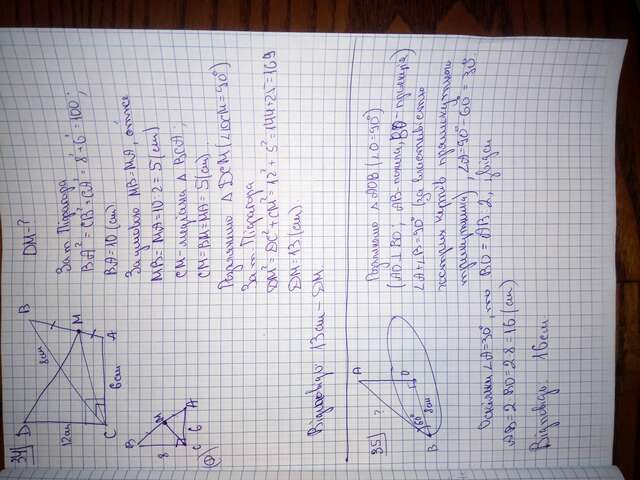 34
D
B
M
A
C
12см
8см
6см
DM-?
За т. Піфагора
BA² = CB² + CA² = 8² + 6² = 100;
BA = 10 (см)
За умовою MB = MA, отже
MB = MA = 10 : 2 = 5 (см)
CM - медіана △ BCA;
CM = BM = MA = 5 (см).
B
M
A
C
8
6
Розглянемо △ DCM (∠DCM = 90°)
За т. Піфагора
DM² = DC² + CM² = 12² + 5² = 144 + 25 = 169
DM = 13 (см).
Відповідь: 13 см - DM.
35
A
?
O
B
60°
8см
Розглянемо △ AOB (∠O = 90°)
(AO ⊥ BO, AB - похила, BO - проекція)
∠A + ∠B = 90° (за властивістю
гострих кутів прямокутного
трикутника), ∠A = 90° - 60° = 30°.
Оскільки ∠A = 30°, то BO = AB : 2, звідси
AB = 2 BO = 2·8 = 16 (см)
Відповідь 16 см